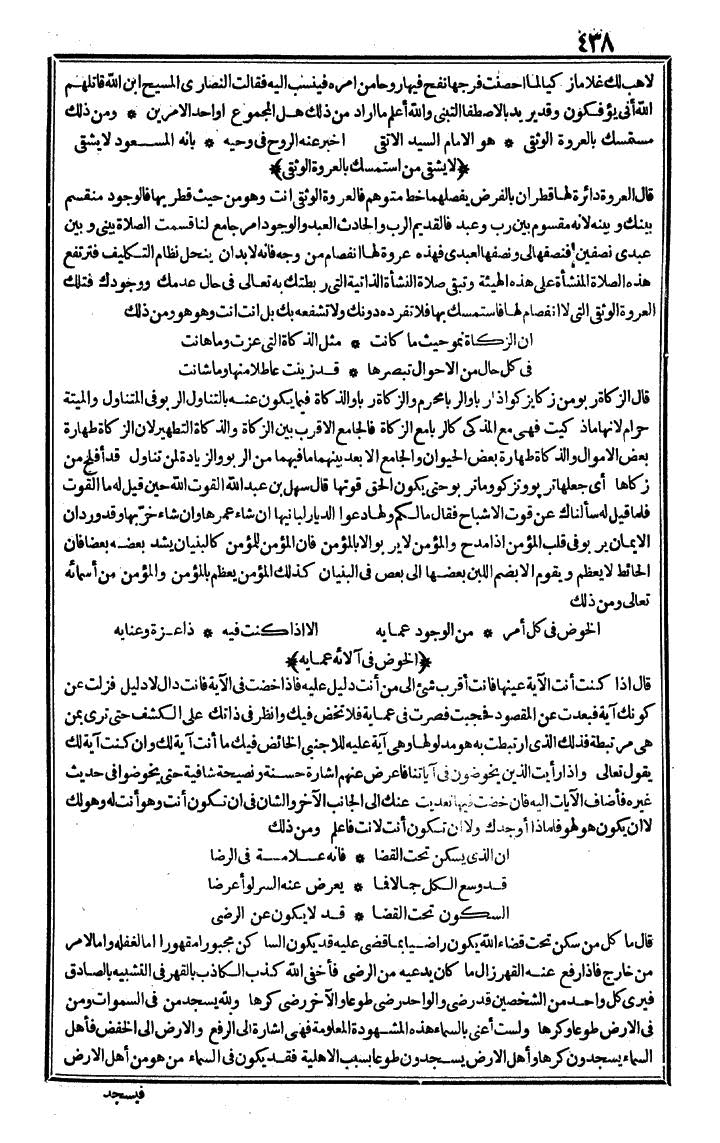 ٤٣٨
لاهب لك غلاما زكيا لما احصنت فرجها نفخ فيها روحا من امره فينسب اليه فقالت النصارى المسيح ابن الله قاتلهم
الله أنى يؤفكون وقد يريد بالاصطفا التبنى والله أعلم ما اراد من ذلك هل المجموع او احد الامرين * ومن ذلك
مستمسك بالعروة الوثقى * هو الامام السيد الاتقى اخبر عنه الروح فى وحيه * بانه المسعود لا يشقى
﴿لا يشقى من استمسك بالعروة الوثقى﴾
قال العروة دائرة لها قطران بالفرض يفصلهما خط متوهم فالعروة الوثقى انت وهو من حيث قطر بها فالوجود منقسم
بينك وبينه لانه مقسوم بين رب وعبد فالقديم الرب والحادث العبد والوجود امر جامع لنا قسمت الصلاة بينى وبين
عبدى نصفين فنصفها لى ونصفها لعبدى فهذه عروة لها انفصام من وجه فانه لا بد ان ينحل نظام التكليف فترتفع
هذه الصلاة المنشأة على هذه الهيئة وتبقى صلاة النشأة الذاتية التى ربطتك به تعالى فى حال عدمك ووجودك فتلك
العروة الوثقى التى لا انفصام لها فاستمسك بها فلا تفرده دونك ولا تشفعه بك بل انت انت وهو هو ومن ذلك
ان الزكاة نمو حيث ما كانت * مثل الذكاة التى عزت وما هانت
فى كل حال من الاحوال تبصرها * قد زينت عاطلا منها وما شانت
قال الزكاة ربو من زكا يزكو اذا ربا والربا محرم والزكاة ربا والذكاة فيما يكون عنه بالتناول الربو فى المتناول والميتة
حرام لانها ما ذكيت فهى مع المذكى كالربا مع الزكاة فالجامع الاقرب بين الزكاة والذكاة التطهير لان الزكاة طهارة
بعض الاموال والذكاة طهارة بعض الحيوان والجامع الابعد بينهما ما فيهما من الربو والزيادة لمن تناول قد أفلح من
زكاها أى جعلها تربو وتزكو وما تربو حتى يكون الحق قوتها قال سهل بن عبد الله القوت الله حين قيل له ما القوت
فلما قيل له سألناك عن قوت الاشباح فقال مالكم ولها دعوا الديار لبانيها ان شاء عمرها وان شاء خربها وقد ورد ان
الايمان يربو فى قلب المؤمن اذا مدح والمؤمن لا يربو الا بالمؤمن فان المؤمن للمؤمن كالبنيان يشد بعضه بعضا فان
الحائط لا يعظم ويقوم الا بضم اللبن بعضها الى بعض فى البنيان كذلك المؤمن يعظم بالمؤمن والمؤمن من أسمائه
تعالى ومن ذلك
الخوض فى كل أمر * من الوجود عمايه الا اذا كنت فيه * ذا عزة وعنايه
﴿الخوض فى آلائه عمايه﴾
قال اذا كنت أنت الآية عينها فانت أقرب شئ الى من أنت دليل عليه فاذا خضت فى الآية فانت دال لا دليل فزلت عن
كونك آية فبعدت عن المقصود فحجبت فصرت فى عماية فلا تخض فيك وانظر فى ذاتك على الكشف حتى ترى بمن
هى مرتبطة فذلك الذى ارتبطت به هو مدلولها وهى آية عليه للاجنبى الخائض فيك ما أنت آية لك وان كنت آية لك
يقول تعالى واذا رأيت الذين يخوضون فى آياتنا فاعرض عنهم اشارة حسنة ونصيحة شافية حتى يخوضوا فى حديث
غيره فأضاف الآيات اليه فان خضت فيها تعديت عنك الى الجانب الآخر والشان فى ان تكون أنت وهو أنت له وهو لك
لا ان يكون هو لهو فلماذا أوجدك ولا ان تكون أنت لانت فاعلم ومن ذلك
ان الذى يسكن تحت القضا * فانه علامة فى الرضا
قد وسع الكل جمالا فما * يعرض عنه السر لو أعرضا
السكون تحت القضا * قد لا يكون عن الرضى
قال ما كل من سكن تحت قضاء الله يكون راضيا بما قضى عليه قد يكون الساكن مجبورا مقهورا اما لغفله واما لامر
من خارج فاذا رفع عنه القهر زال ما كان يدعيه من الرضى فأخفى الله كذب الكاذب بالقهر فى التشبيه بالصادق
فيرى كل واحد من الشخصين قد رضى والواحد رضى طوعا والآخر رضى كرها ولله يسجد من فى السموات ومن
فى الارض طوعا وكرها ولست أعنى بالسماء هذه المشهودة المعلومة فهى اشارة الى الرفع والارض الى الخفض فأهل
السماء يسجدون كرها وأهل الارض يسجدون طوعا بسبب الاهلية فقد يكون فى السماء من هو من أهل الارض
فيسجد